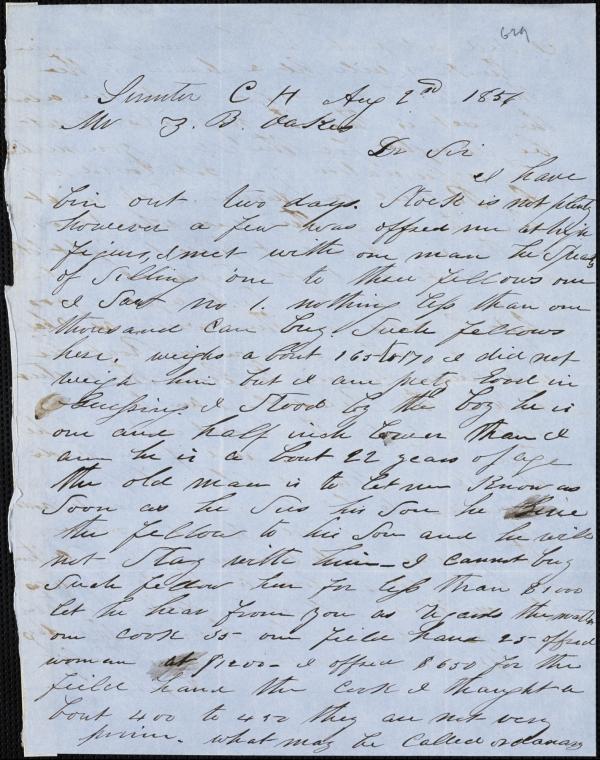 629
Sumter C H Aug 2nd 1854
Mr Z. B. Oakes
Dr Sir
I have
bin out two days. Stock is not plenty
however a few was offred me at
figurs, I met with one man he Speaks
of Silling one to three fellows one
I Saw no 1. nothing less than one
thousand can buy Such fellows
here. weighs a bout 165 to 170 I did not
weigh him but I am prety Good in
Guessing I Stood by the boy he is
one and half inch lower than I
am he is a bout 22 years of age
the old man is to let me Know as
Soon as he Sees his Son he
the fellow to his Son and he will
not Stay with him - I cannot buy
Such fellow her for less than $1000
let me hear from you as regards the
one cook 35 - one field hand 25 - offred
woman at $1200 - I offred $650 for the
field hand the cook I thought a
bout 400 to 450 they are not very
prime. what may be called ordanary